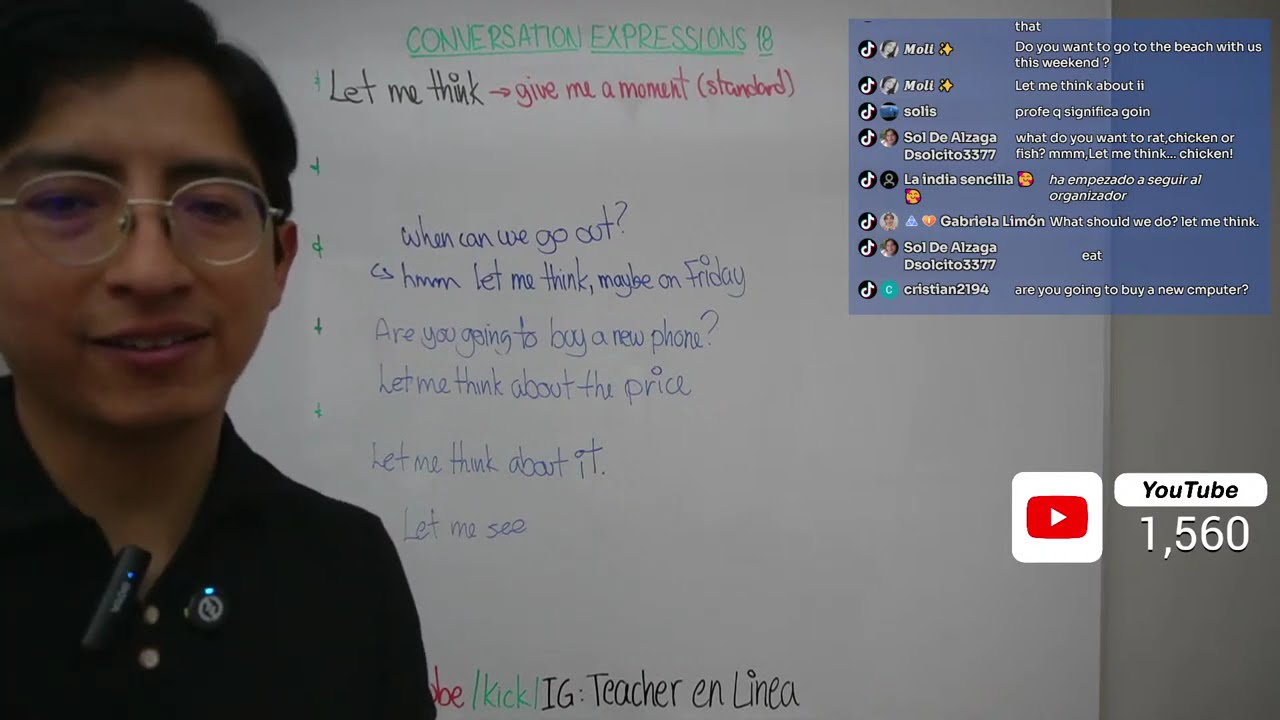 CONVERSATION EXPRESSIONS 18
Let me think → give me a moment (standard)
when can we go out?
↪ hmm let me think, maybe on Friday
Are you going to buy a new phone?
Let me think about the price
Let me think about it.
Let me see
be /kick/IG: Teacher en Linea
that
Moli ✨ Do you want to go to the beach with us
this weekend ?
Moli ✨ Let me think about ii
solis profe q significa goin
Sol De Alzaga what do you want to rat,chicken or
Dsolcito3377 fish? mmm,Let me think... chicken!
La india sencilla 🥰 ha empezado a seguir al
🥰 organizador
Gabriela Limón What should we do? let me think.
Sol De Alzaga
Dsolcito3377 eat
C cristian2194 are you going to buy a new cmputer?
YouTube
1,560